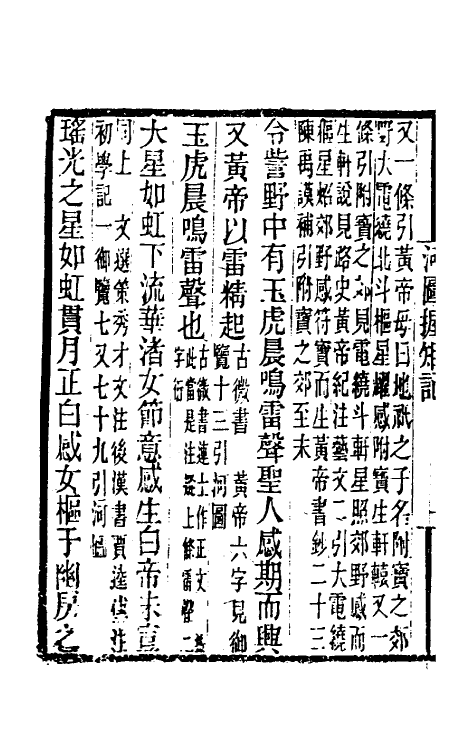 河圖握矩記
又一條引黃帝母曰地祇之子名附寶之郊
野大電繞北斗樞星耀感附寶生軒轅又一
條引附寶之郊見電繞斗軒星照郊野感而
生軒說見路史黃帝紀注藝文二引大電繞
樞星炤郊野感符寶而生黃帝書鈔二十三
陳禹謨補引附寶之郊至末
令訾野中有玉虎晨鳴雷聲聖人感期而興
古微書 黃帝六字見御
覽十三引河圖
又黃帝以雷精起
玉虎晨鳴雷聲也
古微書連上作正文
此當是注上條雷聲二
字衍
大星如虹下流華渚女節意感生白帝朱宣
同上 文選策秀才文注後漢書賈逵傳注
初學記一御覽七又七十九引河圖
瑤光之星如虹貫月正白感女樞于幽房之